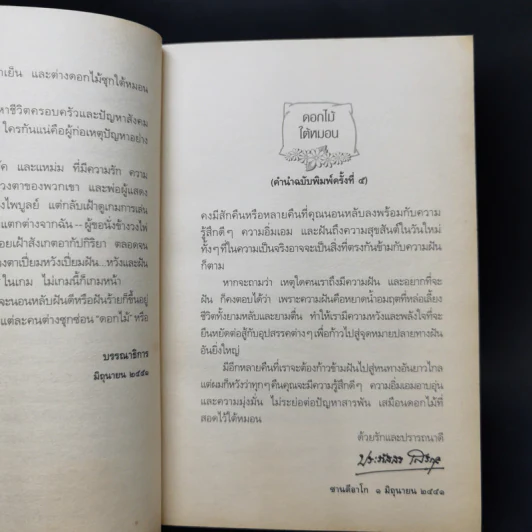 าเย็น และต่างดอกไม้ซุกใต้หมอน
หาชีวิตครอบครัวและปัญหาสังคม
ใครกันแน่คือผู้ก่อเหตุปัญหาอย่าง
และแหม่ม ที่มีความรัก ความ
วงตาของพวกเขา และพ่อผู้แสดง
งไพบูลย์ แต่กลับเฝ้าดูเกมการเล่น
แตกต่างจากฉัน -- ผู้ขอนั่งข้างวงไพ่
อยเฝ้าสังเกตอากัปกิริยา ตลอดจน
งตาเปี่ยมหวังเปี่ยมฝัน...หวังและฝัน
ในเกม ไม่เกมนี้ก็เกมหน้า
จะนอนหลับฝันดีหรือฝันร้ายก็ขึ้นอยู่
แต่ละคนต่างซุกซ่อน "ดอกไม้" หรือ
บรรณาธิการ
มิถุนายน ๒๕๔๑
ดอกไม้
ใต้หมอน
(คำนำฉบับพิมพ์ครั้งที่ ๕)
คงมีสักคืนหรือหลายคืนที่คุณนอนหลับลงพร้อมกับความ
รู้สึกดีๆ ความอิ่มเอม และฝันถึงความสุขสันต์ในวันใหม่
ทั้งๆ ที่ในความเป็นจริงอาจจะเป็นสิ่งที่ตรงกันข้ามกับความฝัน
ก็ตาม
หากจะถามว่า เหตุใดคนเราถึงมีความฝัน และอยากที่จะ
ฝัน ก็คงตอบได้ว่า เพราะความฝันคือหยาดน้ำอมฤตที่หล่อเลี้ยง
ชีวิตทั้งยามหลับและยามตื่น ทำให้เรามีความหวังและพลังใจที่จะ
ยืนหยัดต่อสู้กับอุปสรรคต่างๆ เพื่อก้าวไปสู่จุดหมายปลายทางฝัน
อันยิ่งใหญ่
มีอีกหลายคืนที่เราจะต้องก้าวข้ามฝันไปสู่หนทางอันยาวไกล
แต่ผมก็หวังว่าทุกๆ คืนคุณจะมีความรู้สึกดีๆ ความอิ่มเอมอาบอุ่น
และความมุ่งมั่น ไม่ระย่อต่อปัญหาสารพัน เสมือนดอกไม้ที่
สอดไว้ใต้หมอน
ด้วยรักและปรารถนาดี
ซานดิอาโก ๑ มิถุนายน ๒๕๔๑